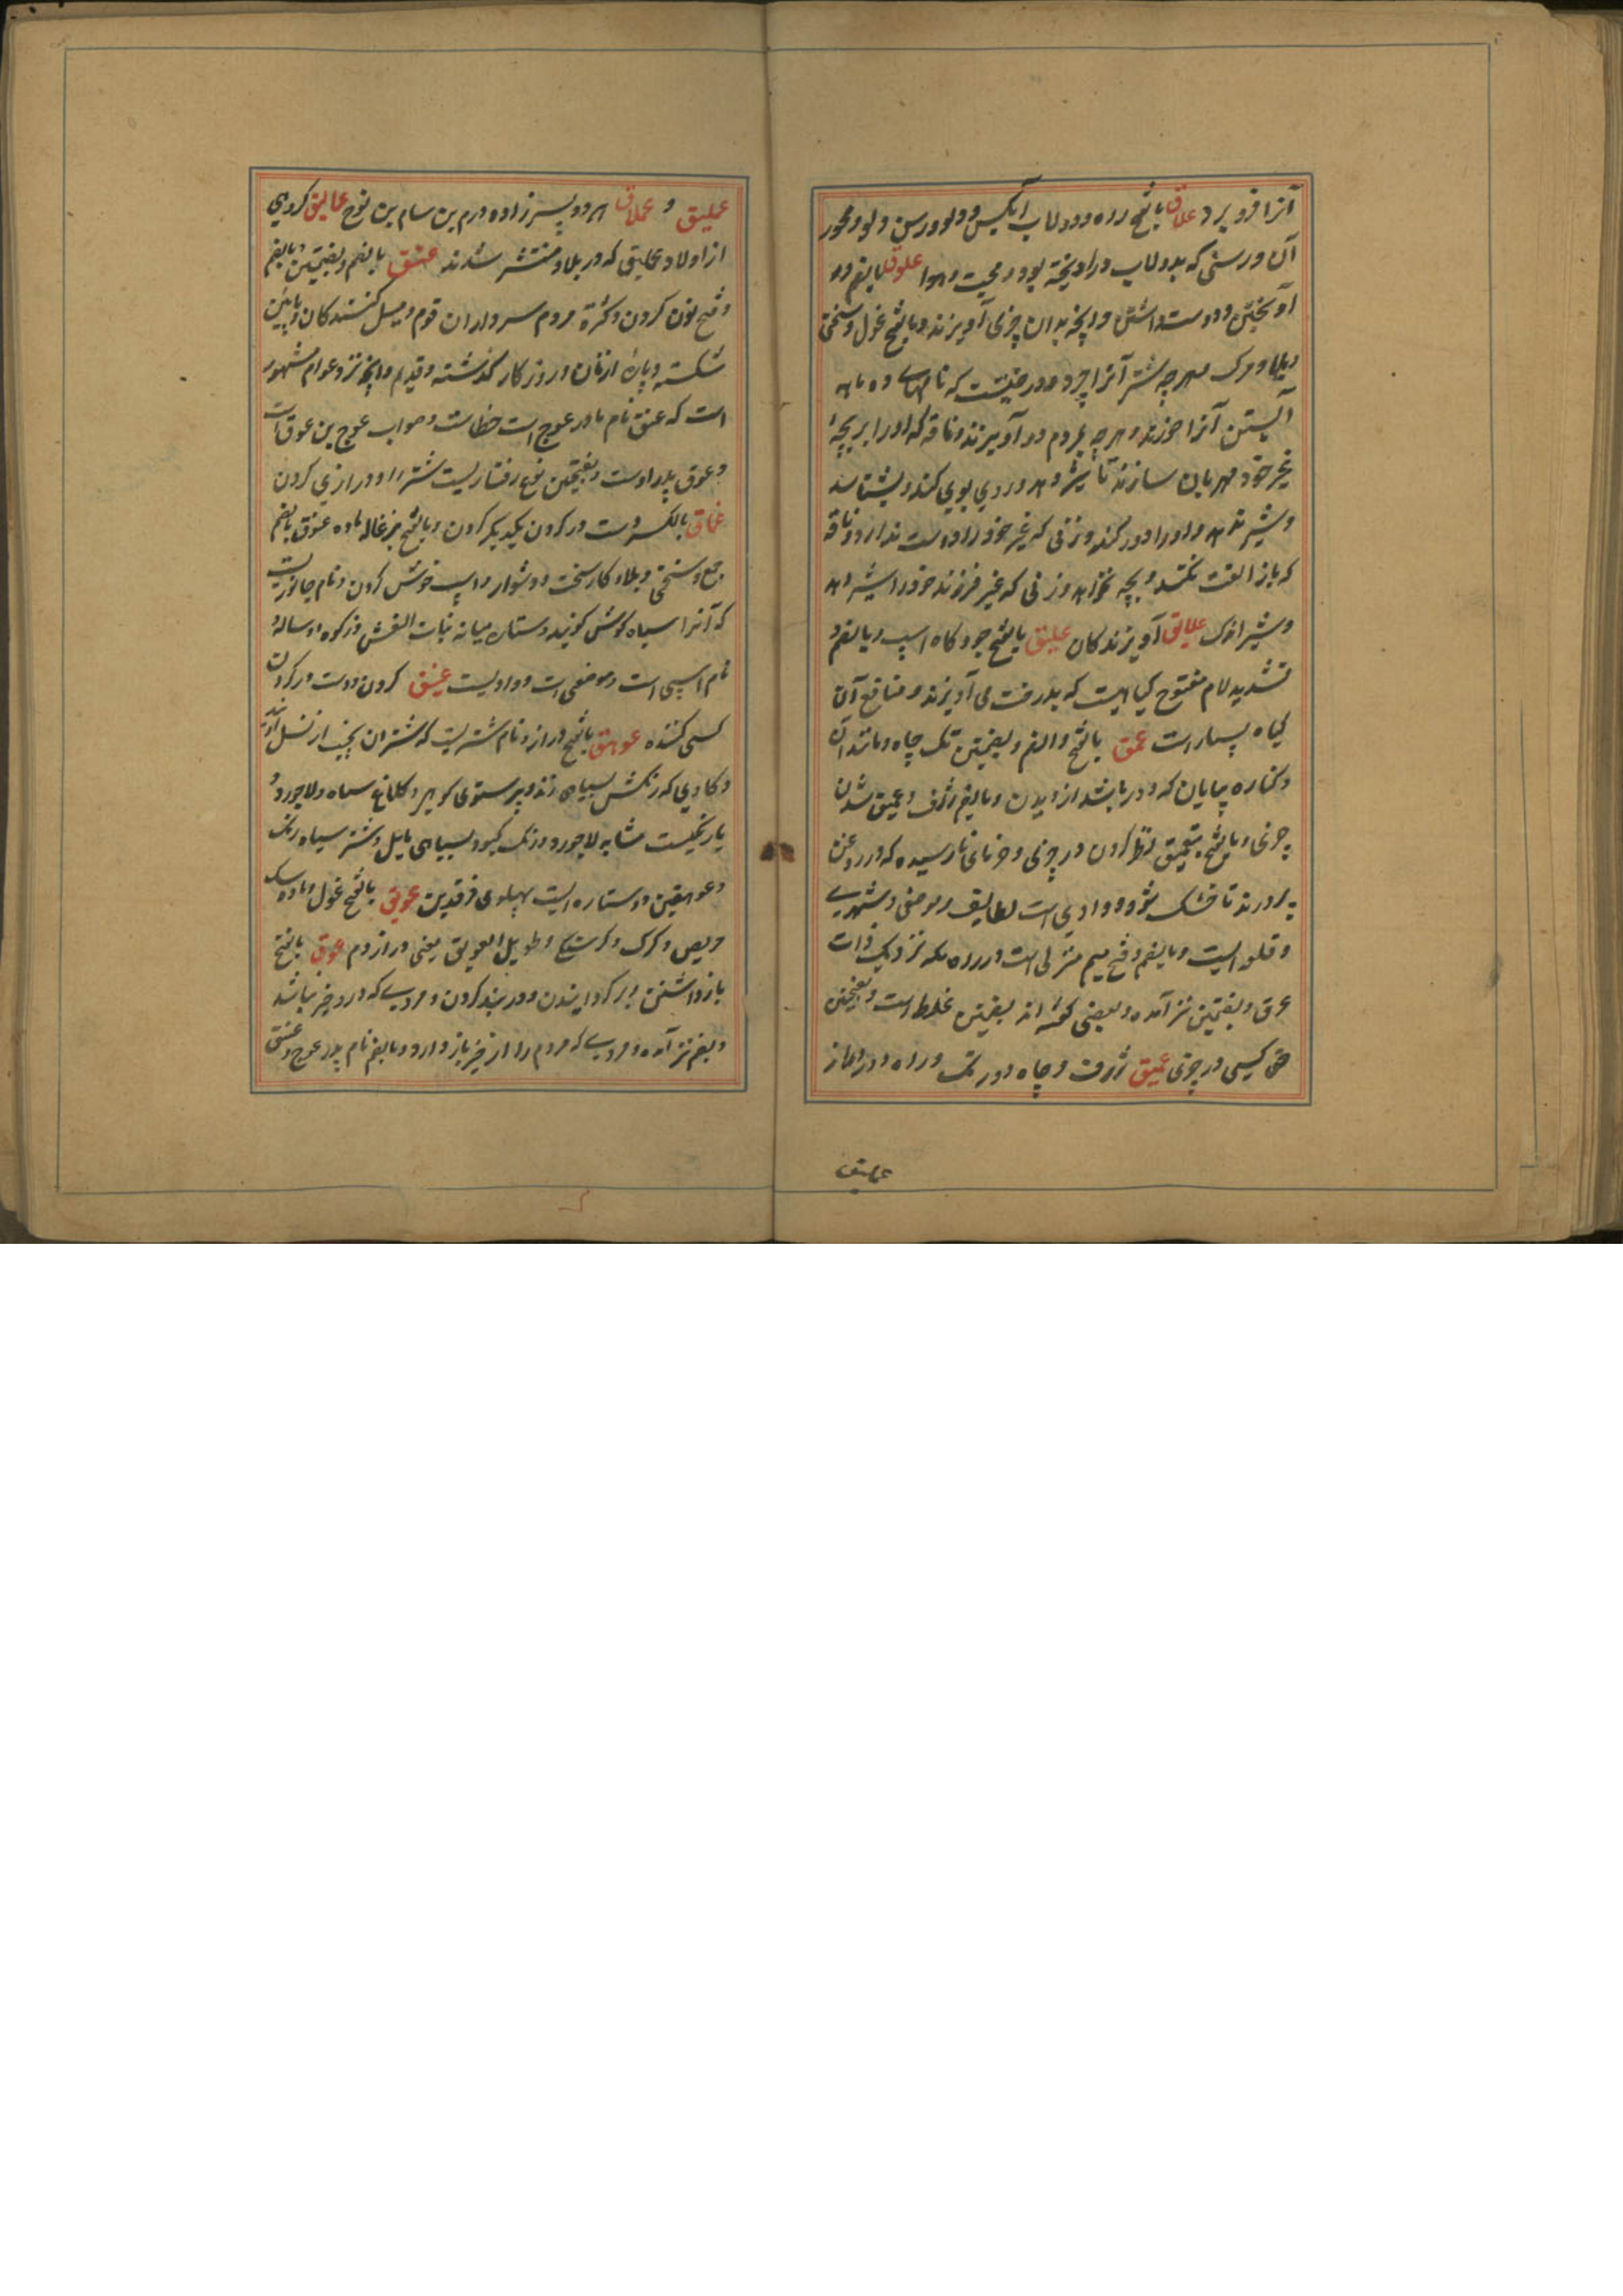 آنرا فرو برد علاق بالفتح دلو و دولاب آبکش و دلو و رسن دلو و محور
آن و رسنی که بدولاب در اویخته بود و محبت و هوا علوق بالضم در
آویختن و دوست داشتن و انچه بدان چیزی آویزند و بالفتح غول و سختی
و بلا و مرک و هرچه شتر آنرا چرد و درختیست که ناقهای ده ماهه
آبستن آنرا خورند و هرچه بمردم در آویزند و ناقه که او را بر بچهٔ
غیر خود مهربان سازند تا شیر دهد و ردی بوی کند و بشناسد
و شیر ندهد و او را دور کند و زنی که غیر خود را دوست ندارد و ناقه
که باز الفت نکند و بچه نخواهد و زنی که غیر فرزند خود را شیر دهد
و شیر اندک علایق آویزندکان علیق بالفتح جو و کاه اسپ و بالضم و
تشدید لام مفتوح کیاهیست که بدرخت می آویزند و منافع آن
کیاه بسیار است عمق بالفتح والضم و بضمتین تک چاه و مانند آن
و کناره بیابان که دور باشد از دیدن و بالضم ژرف و عمیق شدن
چیزی و بالفتح بتعمیق نظر کردن در چیزی و خرمای نارسیده که در روغن
پرورند تا خشک شود و وادی است بطایف و موضعی و شهری
و قلعه ایست و بالضم و فتح میم منزلی است در راه مکه نزدیک ذات
عرق و بضمتین نیز آمده و بعضی کفته اند بضمتین غلط است و بفتحتین
حق کسی در چیزی عمیق ژرف و چاه دور تک و راه دور و دراز
عملیق
عملیق و عملاق هر دو پسرزاده ارم بن سام بن نوح عمالیق کروهی
از اولاد عملیق که در بلاد منتشر شدند عنق بالضم و بضمتین و بالضم
و فتح نون کردن و کثرة مردم سرداران قوم و میل کنندکان و پایین
شکنبه و پاره از نان و روزکار کذشته و قدیم و انچه نزد عوام مشهور
است که عنق نام مادر عوج است خطاست و صواب عوج بن عوق است
و عوق پدر اوست و بفتحتین نوع رفتاریست شتر را و درازی کردن
عناق بالکسر دست در کردن یکدیکر کردن و بالفتح بزغاله ماده عنوق بالضم
جمع و سختی و بلا و کار سخت و دشوار و اسپ خوش کردن و نام جانوریست
که آنرا سیاه کوش کویند و ستاره میانه بنات النعش و زکوة دو ساله و
نام اسپی است و موضعی است و وادیست عنیق کردن و دست در کردن
کسی کننده عوهق بالفتح دراز و نام شتریست که شتران نجیب از نسل اویند
و کاوی که رنکش بسیاهی زند و پرستوی کوهی و کلاغ سیاه و لاجورد و
یا رنکیست مشابه لاجورد و رنک کبود بسیاهی مایل و شتر سیاه رنک
و عوهقین دو ستاره ایست پهلوی فرقدین عولق بالفتح غول و ماده سک
حریص و کرک و کرسنکی و طویل العولق یعنی دراز دم عوق بالفتح
بازداشتن و بر کردانیدن و در بند کردن و مردی که در و خیر نباشد
و بضم نیز آمده و مردی که مردم را از خیر باز دارد و بالضم نام پدر عوج و عنق